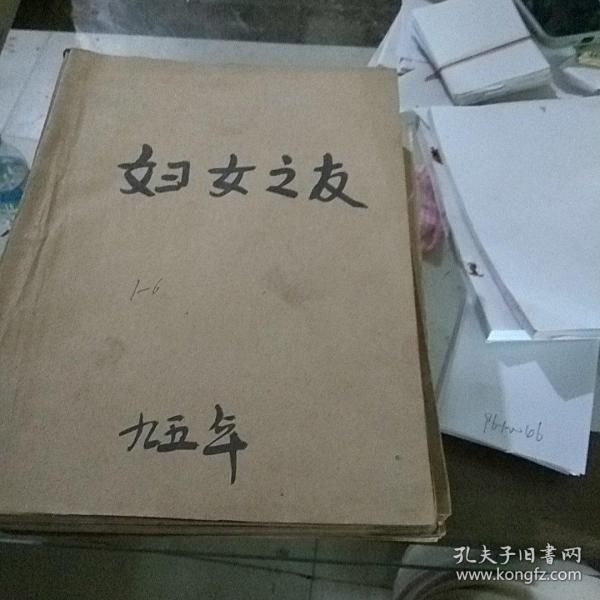 妇女之友
1-6
九五年
孔夫子旧书网
www.kongfz.com